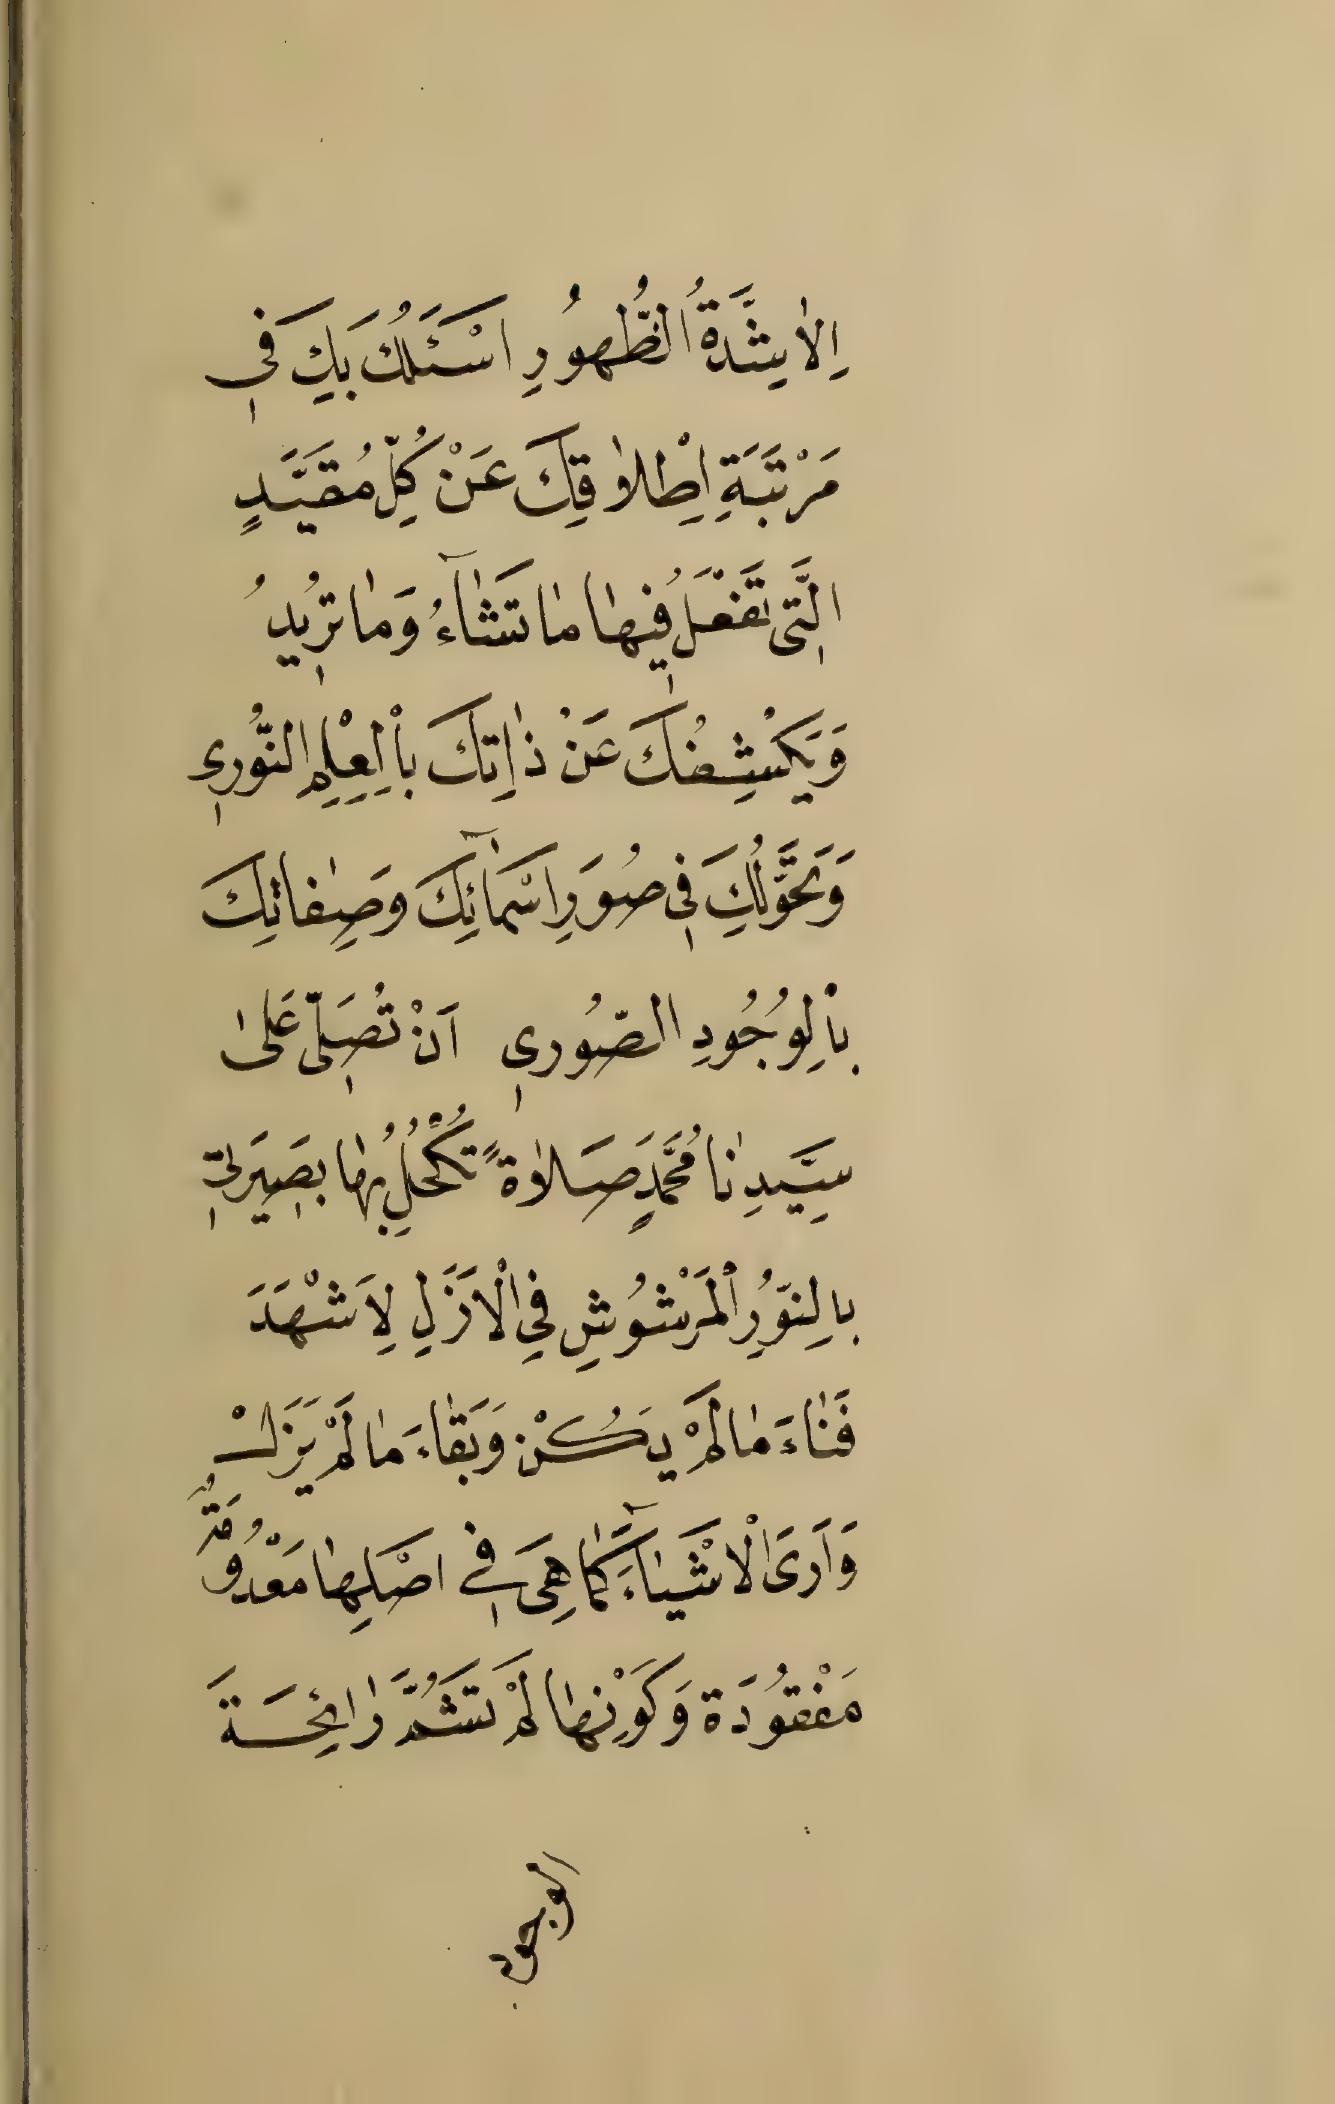 اِلاٰ شِدَّةُ الظُّهُورِ اَسْئَلُكَ بِكَ فِي
مَرْتَبَةِ اِطْلاٰقِكَ عَنْ كُلِّ مُقَيَّدٍ
الَّتِي تَفْعَلُ فِيهاٰ ماٰ تَشٰآءُ وَماٰ تُرِيدُ
وَيَكْشِفُكَ عَنْ ذٰاتِكَ بِاْلعِلْمِ النُّورِي
وَتَحَوُّلِكَ فِي صُوَرِ اَسْمٰآئِكَ وَصِفٰاتِكَ
بِاْلوُجُودِ الصُّورِي اَنْ تُصَلِّيَ عَلىٰ
سَيِّدِنٰا مُحَمَّدٍ صَلاٰةً تُكْحِلُ بِهٰا بَصِيرَتِي
بِالنُّورِ اْلمَرْشُوشِ فِي اْلاَزَلِ لِاَشْهَدَ
فَنٰاءَ مٰا لَمْ يَكُنْ وَبَقٰاءَ مٰا لَمْ يَزَلْ
وَاَرَى اْلاَشْيٰآءَ كَمٰا هِيَ فِي اَصْلِهٰا مَعْدُومَةٌ
مَفْقُودَة وَكَوْنِهٰا لَمْ تَشُمَّ رٰائِحَةَ
الوجود